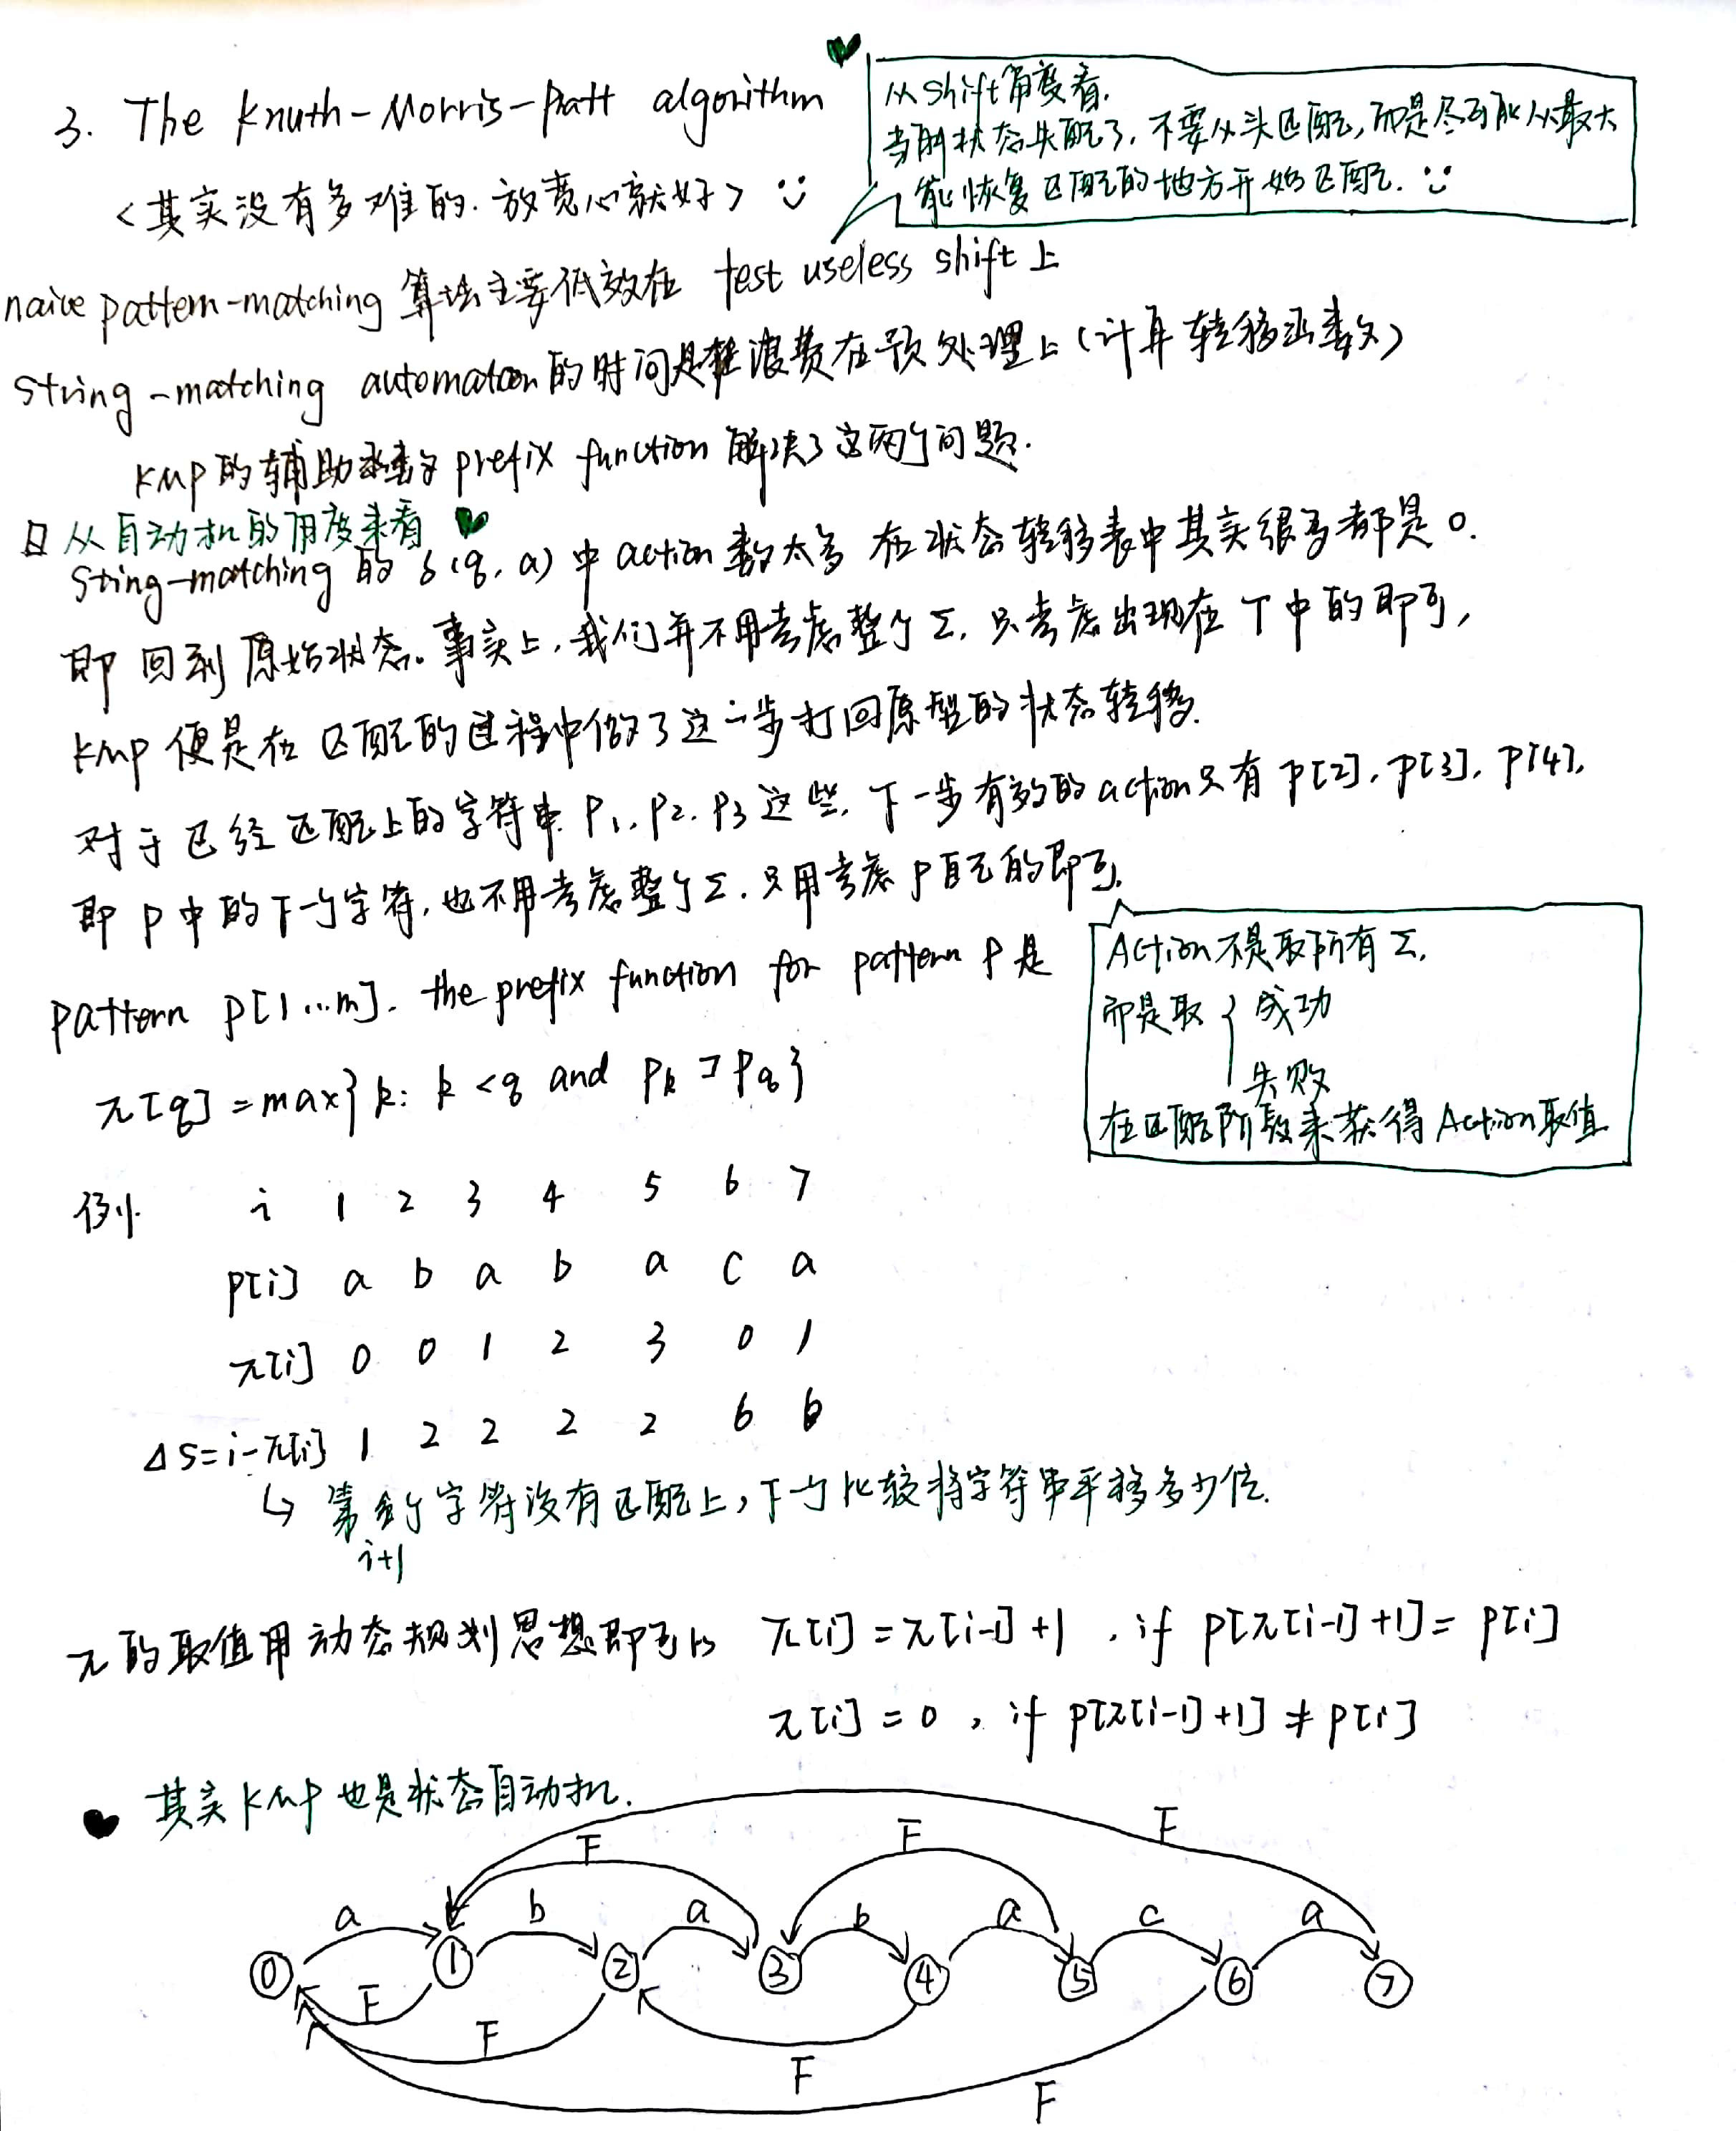 3. The Knuth-Morris-Pratt algorithm
<其实没有多难的. 放宽心就好>
从shift角度看.
当前状态失配了, 不要从头匹配, 而是尽可能从最大
能恢复匹配的地方开始匹配.
naive pattern-matching 算法主要低效在 test useless shift 上
string-matching automaton的时间是 浪费在预处理上 (计算转移函数)
KMP的辅助函数 prefix function 解决了这两个问题.
从自动机的角度来看
string-matching 的 δ(q, a) 中 action 数太多 在状态转移表中其实很多都是 0.
即 回到 原始状态。事实上, 我们并不用考虑整个 Σ, 只考虑出现在 T 中的即可,
KMP 便是在 匹配的过程中做了这一步打回原型的状态转移.
对于已经匹配上的字符串 P1, P2, P3 这些, 下一步有效的action只有 P[2], P[3], P[4],
即 P 中的下一个字符, 也不用考虑整个 Σ. 只用考虑 P 自己的即可.
Action 不是取所有 Σ,
而是取 { 成功
失败
在匹配阶段来获得 Action 取值
pattern P[1...m]. the prefix function for pattern P 是
π[q] = max{ k: k < q and Pk ⊐ Pq }
例. i 1 2 3 4 5 6 7
P[i] a b a b a c a
π[i] 0 0 1 2 3 0 1
ΔS=i-π[i] 1 2 2 2 2 6 6
↳ 第 个字符没有匹配上, 下个比较将字符串平移多少位.
i+1
π 的取值用动态规划思想即可 π[i] = π[i-1]+1 , if P[π[i-1]+1] = P[i]
π[i] = 0 , if P[π[i-1]+1] ≠ P[i]
其实 KMP 也是状态自动机.
F F F
a b a b a c a
0 1 2 3 4 5 6 7
F F F F